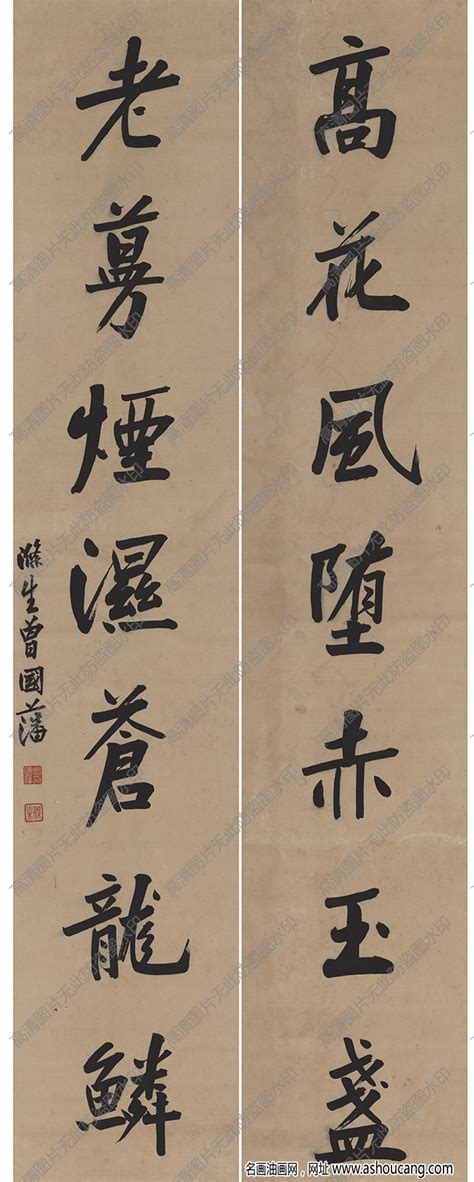 高花風堕赤玉盞
老蔓煙濕蒼龍鱗
滌生曾國藩
高清图片无此防盗图水印
名画油画网，网址 www.ashoucang.com